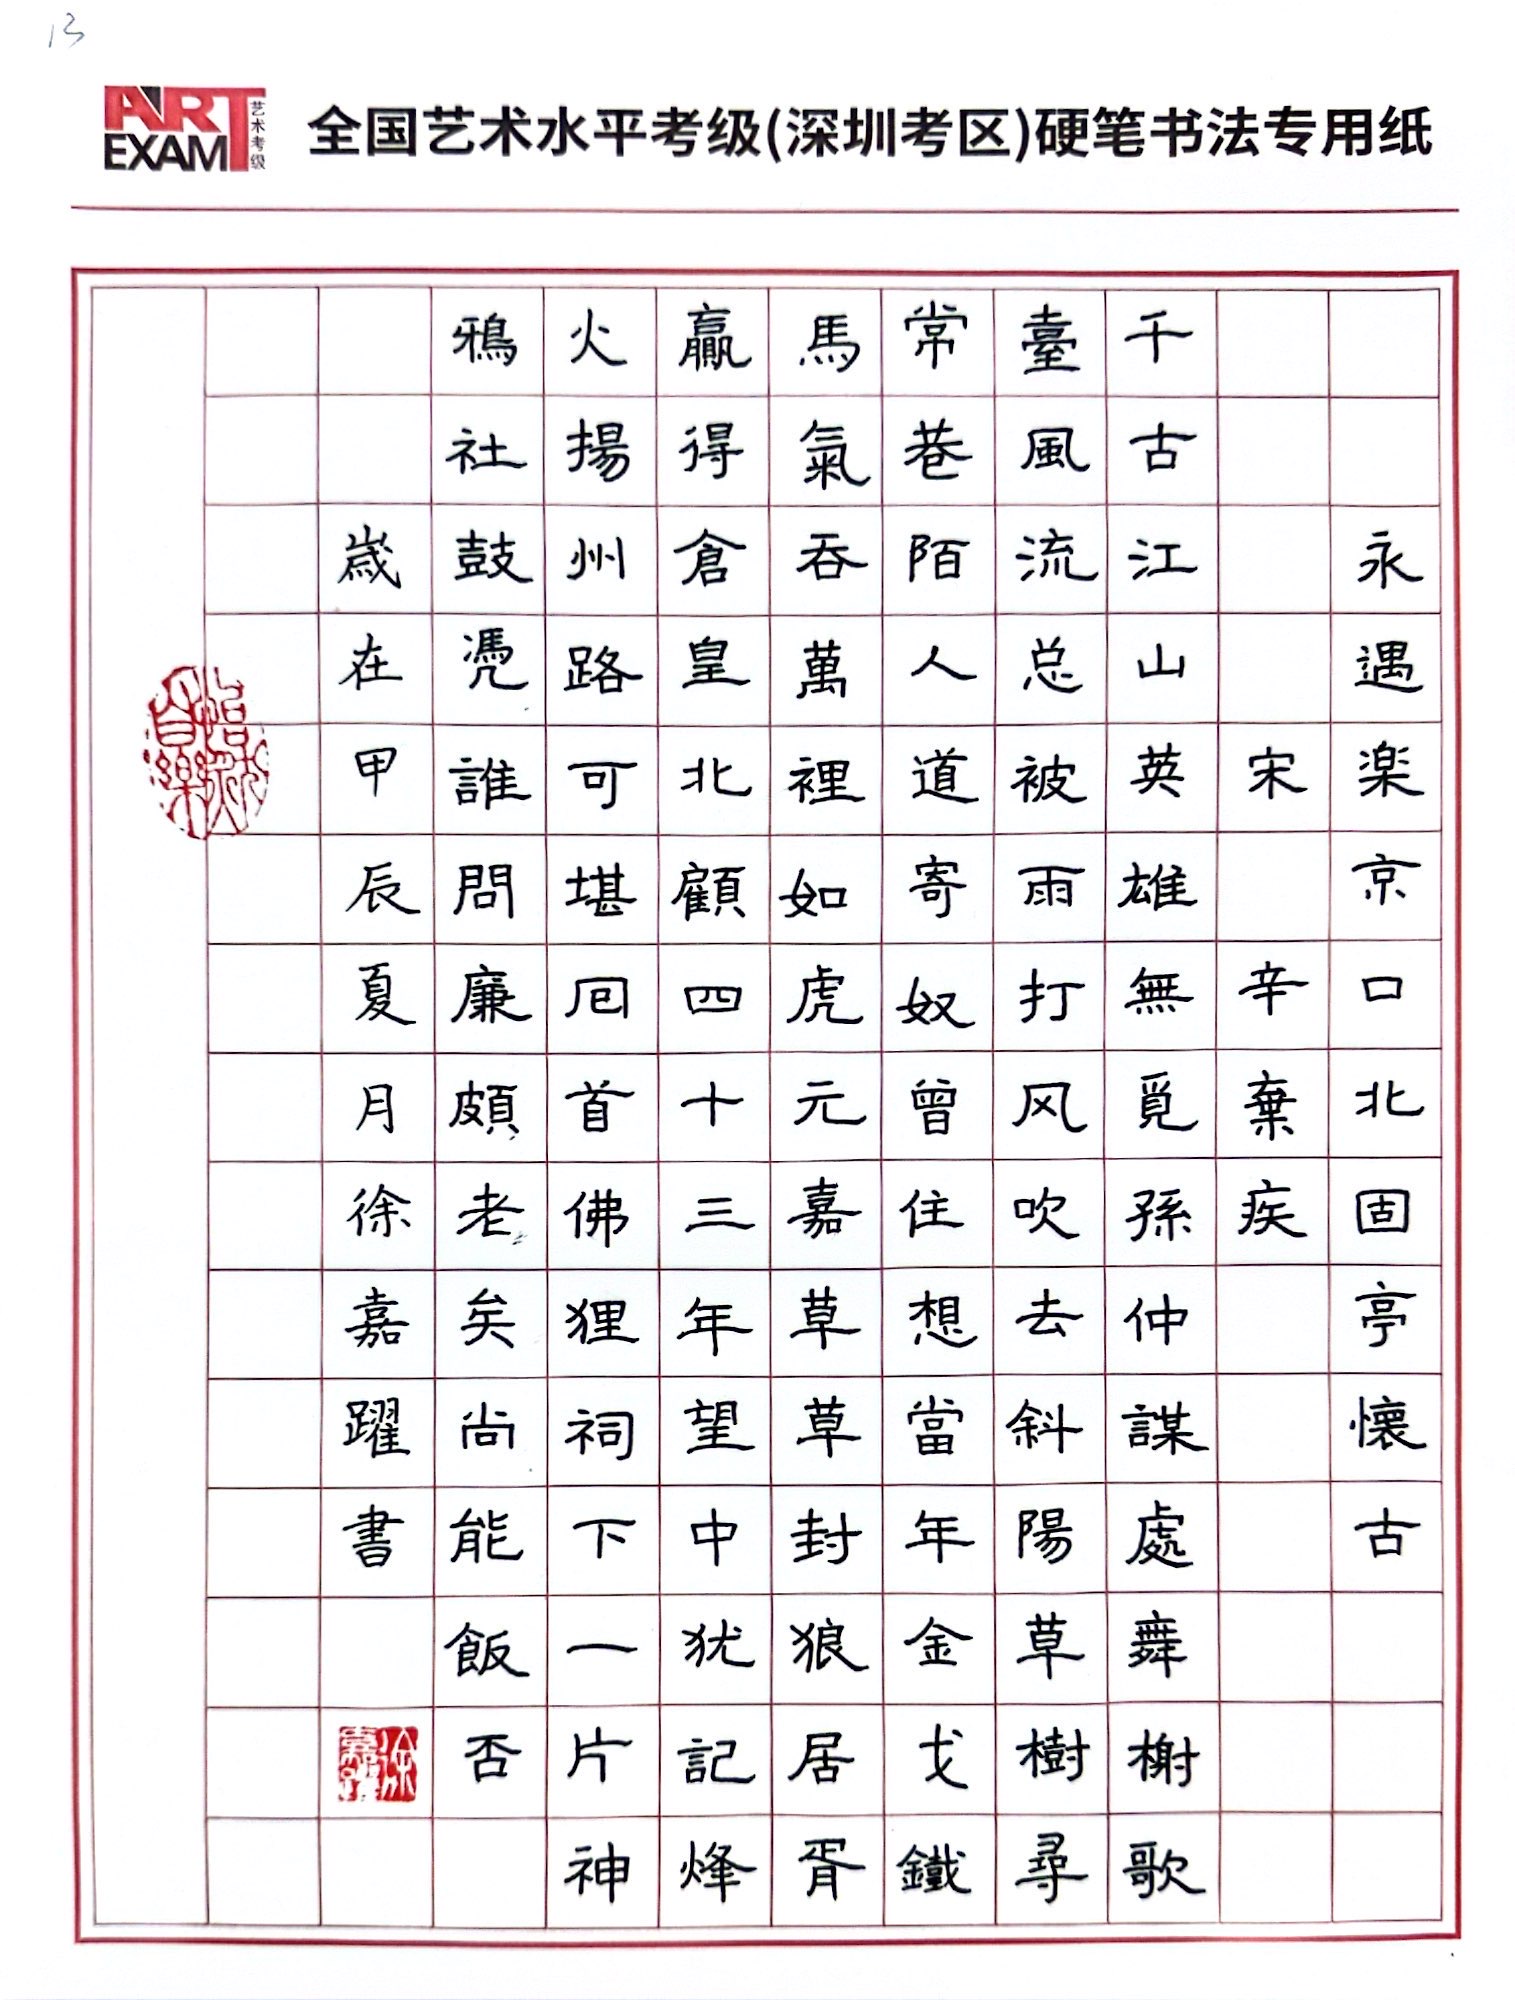 13
ART EXAM 艺术考级
全国艺术水平考级(深圳考区)硬笔书法专用纸
永遇楽京口北固亭懷古
宋 辛棄疾
千古江山英雄無覓孫仲謀處舞榭歌
臺風流总被雨打风吹去斜陽草樹尋
常巷陌人道寄奴曾住想當年金戈鐵
馬氣吞萬裡如虎元嘉草草封狼居胥
贏得倉皇北顧四十三年望中犹記烽
火揚州路可堪囬首佛狸祠下一片神
鴉社鼓凴誰問廉頗老矣尚能飯否
歲在甲辰夏月徐嘉躍書
徐嘉躍
臨池自樂